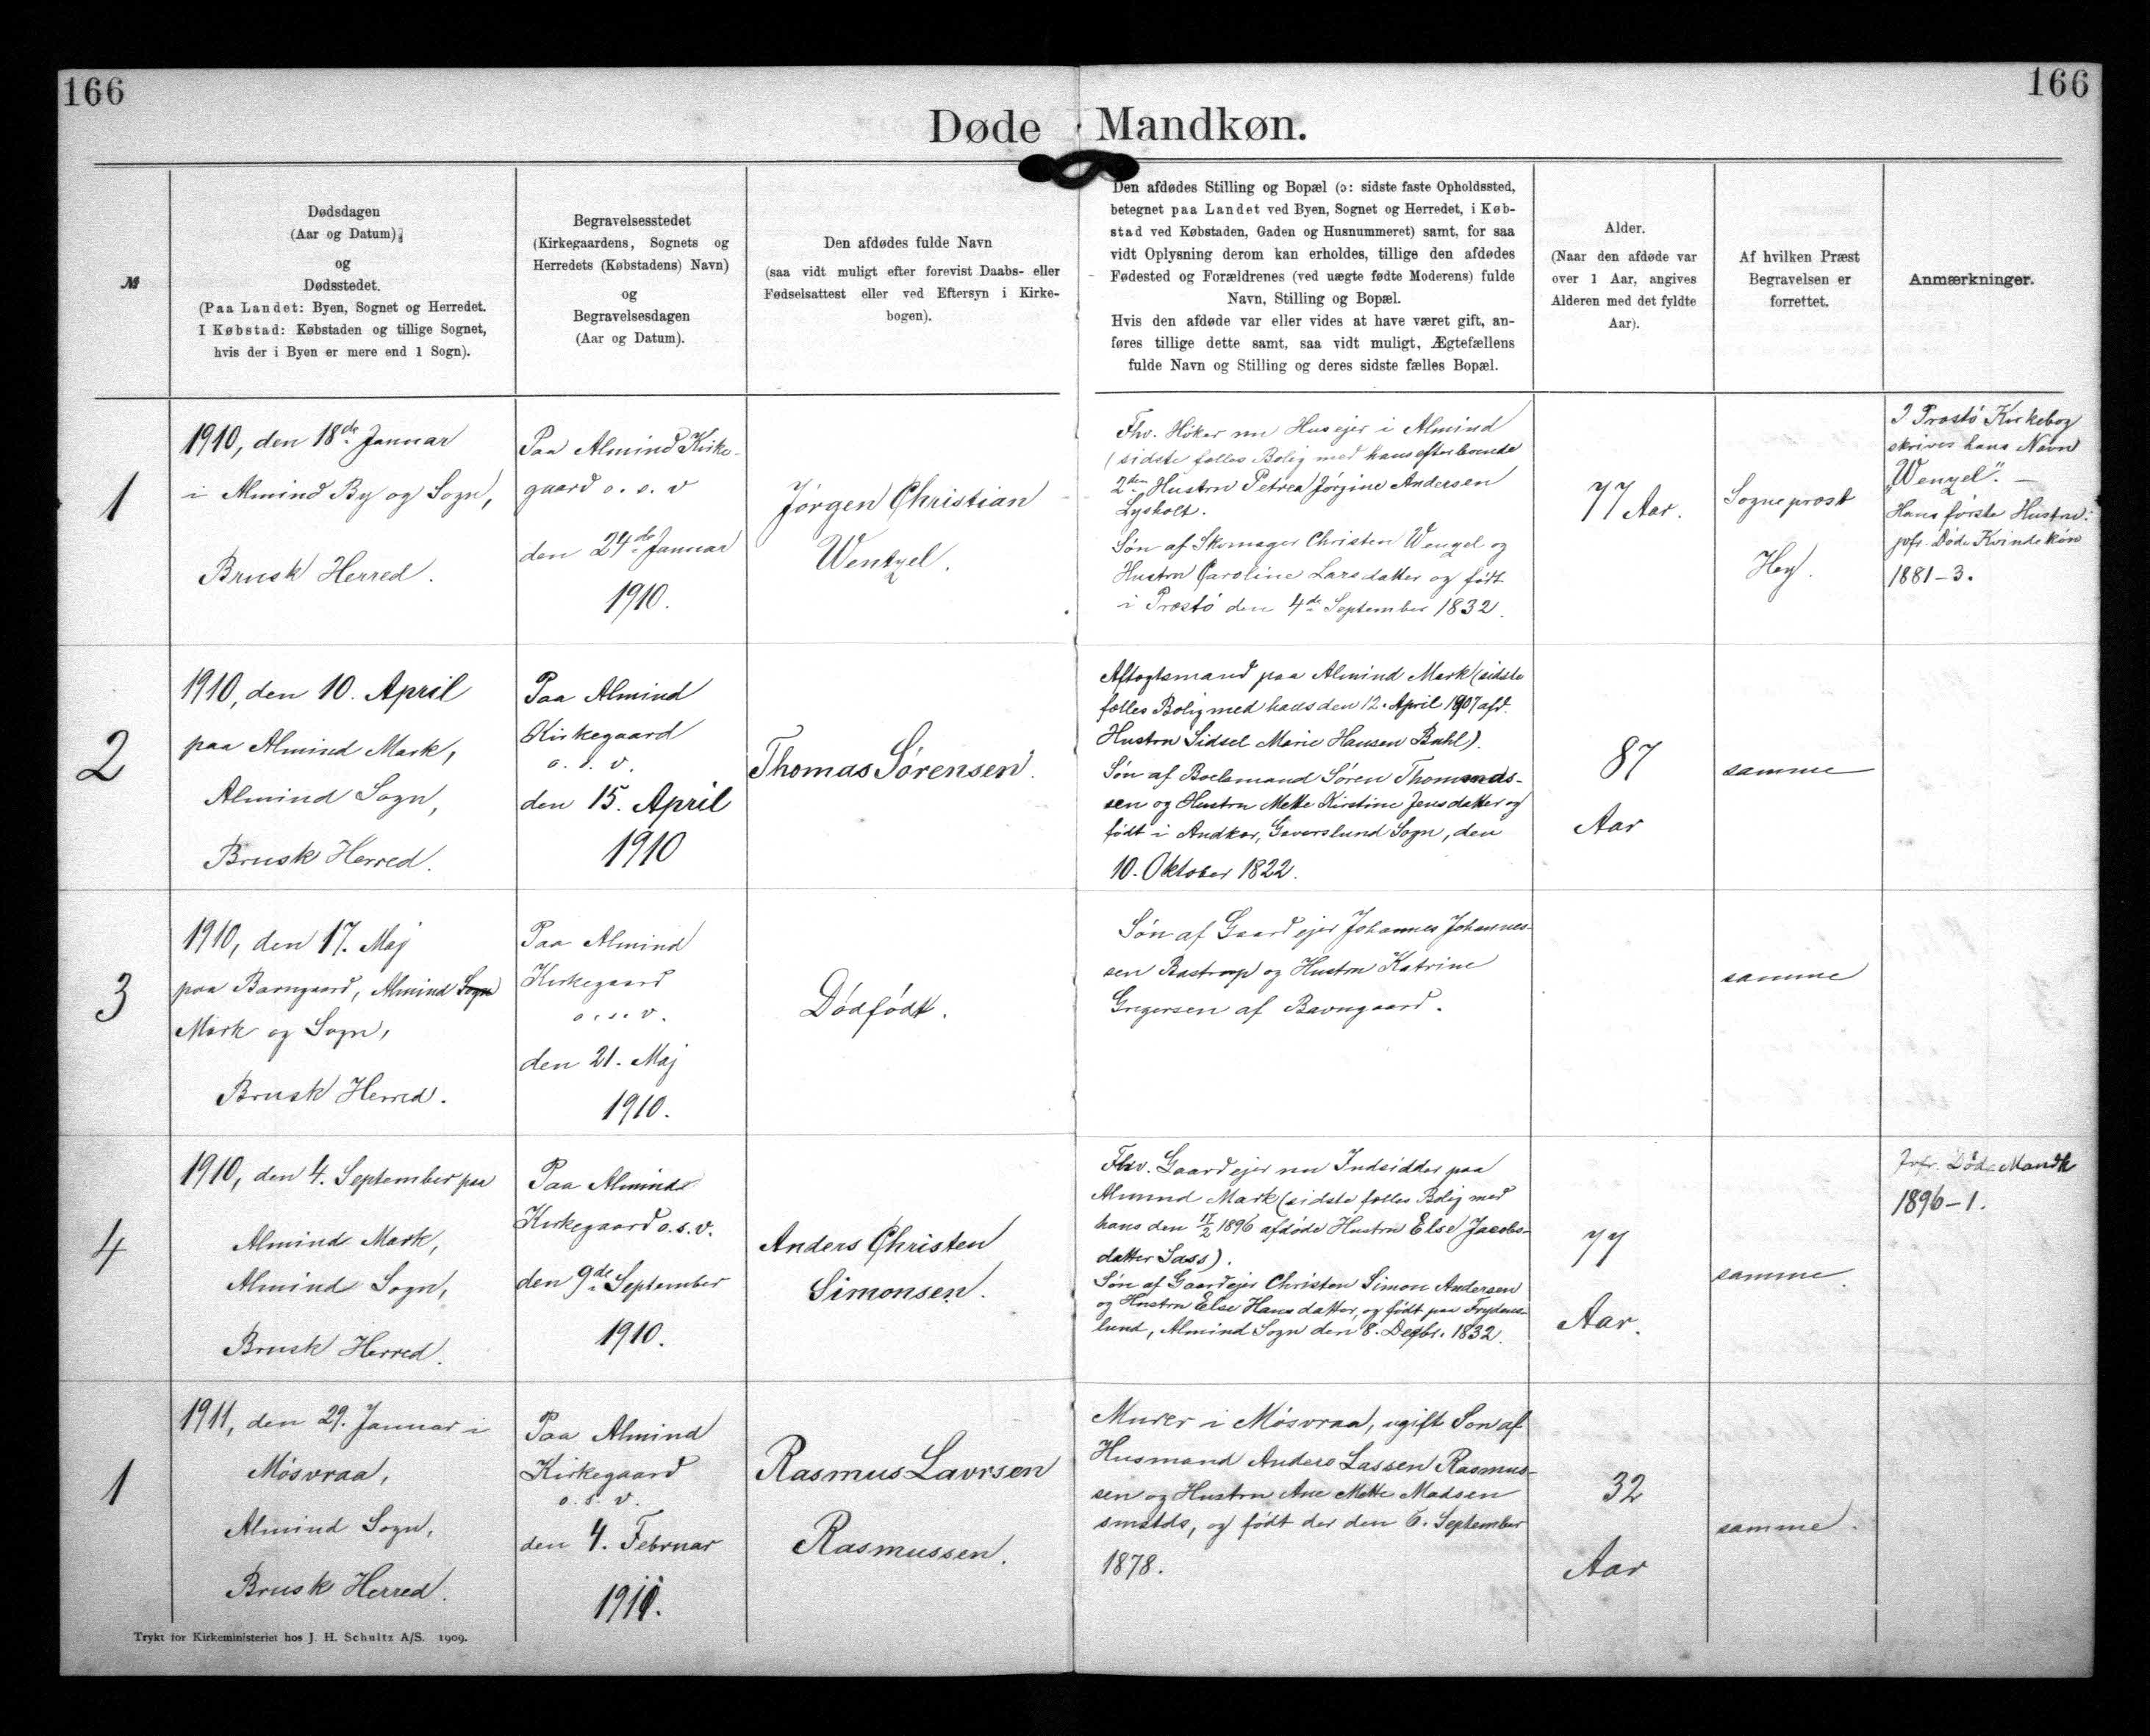 166
166
Døde Mandkøn.
№
Dødsdagen
(Aar og Datum)
og
Dødsstedet.
(Paa Landet: Byen, Sognet og Herredet.
I Købstad: Købstaden og tillige Sognet,
hvis der i Byen er mere end 1 Sogn).
Begravelsesstedet
(Kirkegaardens, Sognets og
Herredets (Købstadens) Navn)
og
Begravelsesdagen
(Aar og Datum).
Den afdødes fulde Navn
(saa vidt muligt efter forevist Daabs- eller
Fødselsattest eller ved Eftersyn i Kirke-
bogen).
Den afdødes Stilling og Bopæl (ɔ: sidste faste Opholdssted,
betegnet paa Landet ved Byen, Sognet og Herredet, i Køb-
stad ved Købstaden, Gaden og Husnummeret) samt, for saa
vidt Oplysning derom kan erholdes, tillige den afdødes
Fødested og Forældrenes (ved uægte fødte Moderens) fulde
Navn, Stilling og Bopæl.
Hvis den afdøde var eller vides at have været gift, an-
føres tillige dette samt, saa vidt muligt, Ægtefællens
fulde Navn og Stilling og deres sidste fælles Bopæl.
Alder.
(Naar den afdøde var
over 1 Aar, angives
Alderen med det fyldte
Aar).
Af hvilken Præst
Begravelsen er
forrettet.
Anmærkninger.
1
1910, den 18de Januar
i Almind By og Sogn,
Brusk Herred.
Paa Almind Kirke-
gaard o. s. v
den 24de Januar
1910.
Jørgen Christian
Wentzel.
Fhv. Høker nu Husejer i Almind
(sidste fælles Bolig med hans efterlevende
2den Hustru Petrea Jørgine Andersen
Lysholt.
Søn af Skomager Christen Wenzel og
Hustru Caroline Larsdatter og født
i Præstø den 4de September 1832.
77 Aar.
Sognepræst
Hey.
I Præstø Kirkebog
skrives hans Navn
"Wenzel". -
Hans første Hustru:
jvfr. Døde Kvindekøn
1881-3.
2
1910, den 10. April
paa Almind Mark,
Almind Sogn,
Brusk Herred.
Paa Almind
Kirkegaard
o. s. v.
den 15. April
1910
Thomas Sørensen.
Aftægtsmand paa Almind Mark (sidste
fælles Bolig med hans den 12. April 1907 afd.
Hustru Sidsel Marie Hansen Buhl).
Søn af Boelsmand Søren Thomas-
sen og Hustru Mette Kirstine Jensdatter og
født i Andkær, Gaverslund Sogn, den
10. Oktober 1822.
87
Aar
samme
3
1910, den 17. Maj
paa Bavngaard, Almind Sogn
Mark og Sogn,
Brusk Herred.
Paa Almind
Kirkegaard
o. s. v.
den 21. Maj
1910.
Dødfødt.
Søn af Gaardejer Johannes Johannes-
sen Bastrup og Hustru Katrine
Gregersen af Bavngaard.
samme
4
1910, den 4. September paa
Almind Mark,
Almind Sogn,
Brusk Herred.
Paa Almind
Kirkegaard o. s. v.
den 9de September
1910.
Anders Christen
Simonsen.
Fhv. Gaardejer nu Indsidder paa
Almind Mark (sidste fælles Bolig med
hans den 17/2 1896 afdøde Hustru Else Jacobs-
datter Sass).
Søn af Gaardejer Christen Simon Andersen
og Hustru Else Hansdatter, og født paa Frydens-
lund, Almind Sogn den 8. Decbr. 1832.
77
Aar.
samme.
Jvfr. Døde Mandk
1896-1.
1
1911, den 29. Januar i
Møsvraa,
Almind Sogn,
Brusk Herred.
Paa Almind
Kirkegaard
o. s. v.
den 4. Februar
1911.
Rasmus Lavrsen
Rasmussen.
Murer i Møsvraa, ugift Søn af
Husmand Anders Lassen Rasmus-
sen og Hustru Ane Mette Madsen
smstds, og født der den 6. September
1878.
32
Aar
samme.
Trykt for Kirkeministeriet hos J. H. Schultz A/S. 1909.